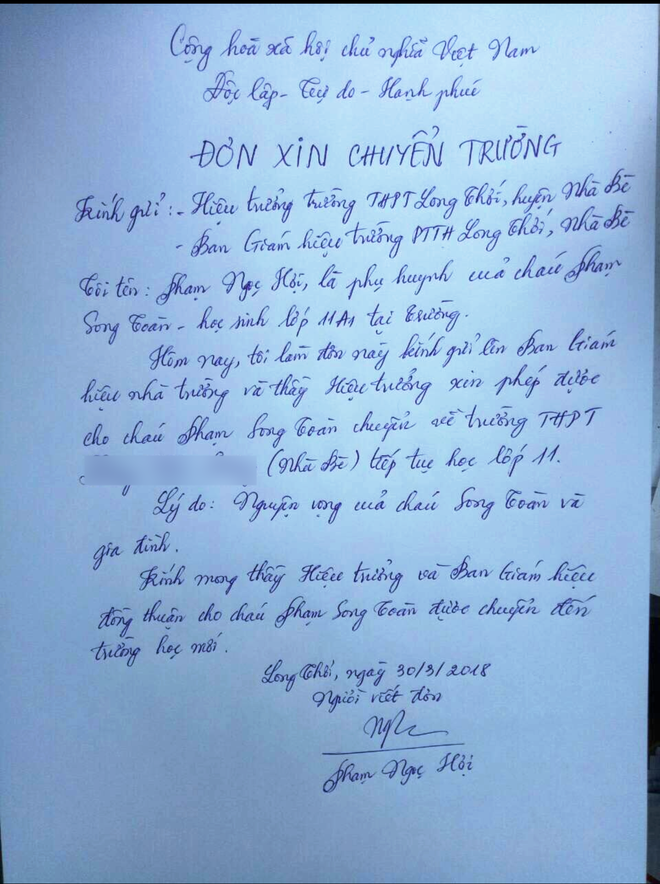 Cộng hoà xã hội chủ nghĩa Việt Nam
Độc lập - Tự do - Hạnh phúc
ĐƠN XIN CHUYỂN TRƯỜNG
Kính gửi : - Hiệu trưởng trường THPT Long Thới, huyện Nhà Bè
- Ban Giám hiệu trường PTTH Long Thới, Nhà Bè
Tôi tên : Phạm Ngọc Hội, là phụ huynh của cháu Phạm
Song Toàn - học sinh lớp 11A1 tại trường.
Hôm nay, tôi làm đơn này kính gửi lên Ban Giám
hiệu nhà trường và thầy Hiệu trưởng xin phép được
cho cháu Phạm Song Toàn chuyển về trường THPT
(Nhà Bè) tiếp tục học lớp 11.
Lý do : Nguyện vọng của cháu Song Toàn và
gia đình.
Kính mong thầy Hiệu trưởng và Ban Giám hiệu
đồng thuận cho cháu Phạm Song Toàn được chuyển đến
trường học mới.
Long Thới, ngày 30/3/2018
Người viết đơn
Phạm Ngọc Hội